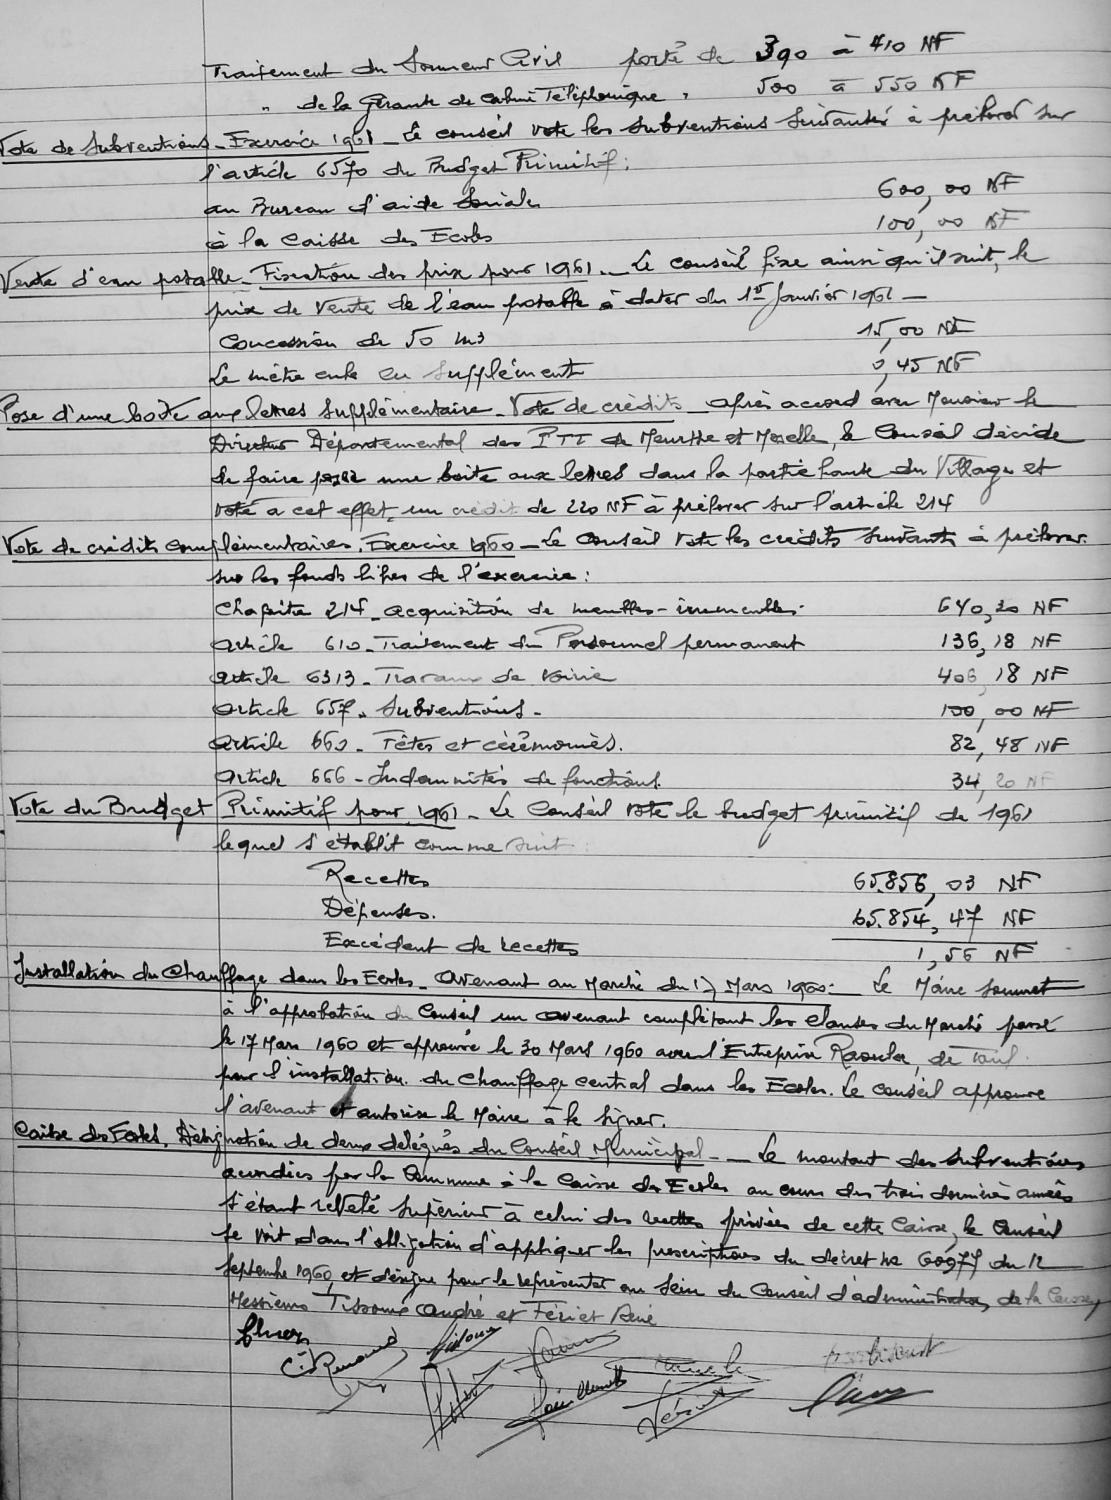 Traitement du Sonneur Civil porté de 390 à 410 NF
" de la Gérante de cabine Téléphonique " 500 à 550 NF
Vote de Subventions - Exercice 1961 - Le conseil vote les subventions suivantes à prélever sur
l'article 6570 du Budget Primitif :
au Bureau d'aide Sociale 600,00 NF
à la Caisse des Ecoles 100,00 NF
Vente d'eau potable - Fixation des prix pour 1961 - Le conseil fixe ainsi qu'il suit, le
prix de vente de l'eau potable à dater du 1er Janvier 1961 -
Concession de 50 m3 15,00 NF
Le mètre cube en supplément 0,45 NF
Pose d'une boîte aux lettres supplémentaire - Vote de crédits - après accord avec Monsieur le
Directeur Départemental des PTT de Meurthe et Moselle, le Conseil décide
de faire poser une boite aux lettres dans la partie haute du Village et
vote à cet effet, un crédit de 220 NF à prélever sur l'article 214
Vote de crédits complémentaires. Exercice 1960 - Le Conseil vote les crédits suivants à prélever
sur les fonds libres de l'exercice :
Chapitre 214 - acquisition de meubles - immeubles - 640,20 NF
article 610 - Traitement du Personnel permanent 136,18 NF
article 6313 - Travaux de voirie 406,18 NF
article 657 - Subventions - 100,00 NF
article 660 - Fêtes et cérémonies. 82,48 NF
article 666 - Indemnités de fonctions. 34,20 NF
Vote du Budget Primitif pour 1961 - Le Conseil vote le budget primitif de 1961
lequel s'établit comme suit :
Recettes 65.856,03 NF
Dépenses. 65.854,47 NF
Excédent de recettes 1,56 NF
Installation du Chauffage dans les Ecoles - avenant au Marché du 17 Mars 1960 - Le Maire soumet
à l'approbation du Conseil un avenant complétant les clauses du Marché passé
le 17 Mars 1960 et approuvé le 30 Mars 1960 avec l'Entreprise de Toul
pour l'installation du Chauffage central dans les Ecoles. Le conseil approuve
l'avenant et autorise le Maire à le signer.
Caisse des Ecoles. Désignation de deux délégués du Conseil Municipal - Le montant des subventions
accordées par la Commune à la Caisse des Ecoles au cours des trois dernières années
s'étant révélé supérieur à celui des recettes privées de cette Caisse, le Conseil
se voit dans l'obligation d'appliquer les prescriptions du décret no 60977 du 12
Septembre 1960, et désigne pour le représenter au sein du Conseil d'administration de la Caisse,
Messieurs andré et Fériet René
C. Renaud